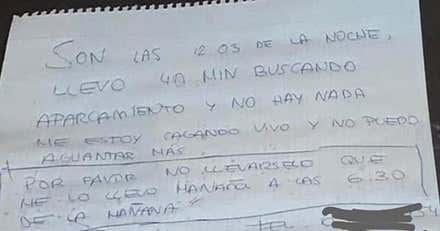 SON LAS 12 03 DE LA NOCHE,
LLEVO 40 MIN BUSCANDO
APARCAMIENTO Y NO HAY NADA
ME ESTOY CAGANDO VIVO Y NO PUEDO
AGUANTAR MAS.
POR FAVOR NO LLEVARSELO QUE
ME LO LLEVO MAÑANA A LAS 6:30
DE LA MAÑANA
TEL